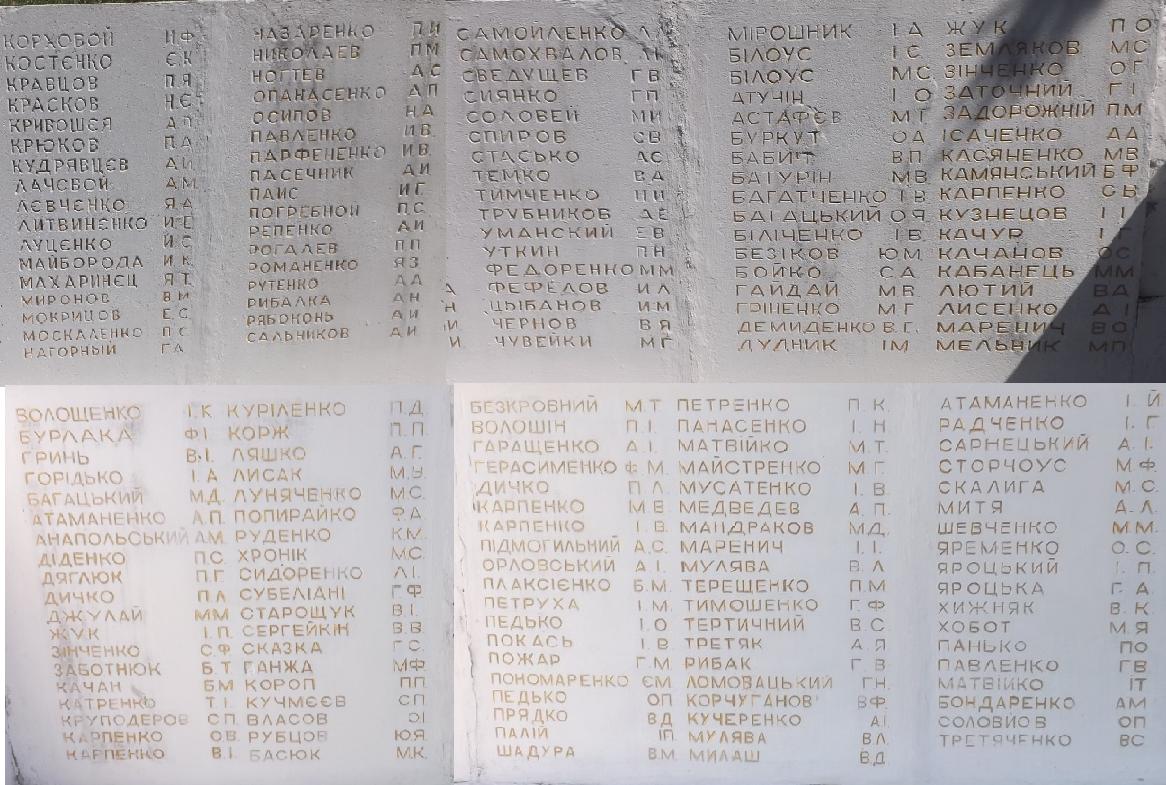 КОРХОВОЙ И.Ф.
КОСТЄНКО Є.К
КРАВЦОВ П.Я
КРАСКОВ Н.Є
КРИВОШЄЯ
КРЮКОВ П.А
КУДРЯВЦЄВ А.И
ЛАЧСВОЙ А.М
ЛЄВЧЄНКО Я.А
ЛИТВИНЄНКО И.Е
ЛУЦЄНКО И.С
МАЙБОРОДА И.К
МАХАРИНЄЦ Я.Т.
МИРОНОВ В.И
МОКРИЦОВ Е.С
МОСКАЛЕНКО П.С
НАГОРНЫЙ Г.А
НАЗАРЕНКО П.И
НИКОЛАЕВ П.М
НОГТЕВ А С
ОПАНАСЕНКО А П
ОСИПОВ Н А
ПАВЛЕНКО И В
ПАРФЕНЕНКО И В
ПАСЕЧНИК А И
ПАИС И Г
ПОГРЕБНОЙ П С
РЕПЕНКО А И
РОГАЛЕВ П П
РОМАНЕНКО Я З
РУТЕНКО А А
РИБАЛКА А Н
РЯБОКОНЬ А И
САЛЬНИКОВ А И
САМОЙЛЕНКО
САМОХВАЛОВ
СВЕДУЩЕВ Г В
СИЯНКО Г П
СОЛОВЕЙ М И
СПИРОВ С В
СТАСЬКО А С
ТЕМКО В А
ТИМЧЕНКО П И
ТРУБНИКОВ А Е
УМАНСКИЙ Е В
УТКИН П Н
ФЕДОРЕНКО М М
ФЕФЕДОВ И Л
ЦЫБАНОВ И М
ЧЕРНОВ В Я
ЧУВЕЙКИ М Г
МІРОШНИК І А
БІЛОУС І Є
БІЛОУС М С
АТУЧІН І О
АСТАФЄВ М Г
БУРКУТ О А
БАБИЧ В П
БАГУРІН М В
БАГАТЧЕНКО І В
БАГАЦЬКИЙ О Я
БІЛІЧЕНКО І В
БЕЗІКОВ Ю М
БОЙКО С А
ГАЙДАЙ М В
ГРІНЕНКО М Г
ДЕМИДЕНКО В.Г.
ДУДНИК І М
ЖУК П О
ЗЕМЛЯКОВ М С
ЗІНЧЕНКО О Г
ЗАТОЧНИЙ Г І
ЗАДОРОЖНІЙ П М
ІСАЧЕНКО А А
КАСЯНЕНКО М В
КАМЯНСЬКИЙ Б Ф
КАРПЕНКО С В
КУЗНЕЦОВ І І
КАЧУР І Г
КАЧАНОВ О С
КАБАНЕЦЬ М М
ЛЮТИЙ В А
ЛИСЕНКО А І
МАРЕНИЧ В О
МЕЛЬНИК М П
ВОЛОЩЕНКО І.К
БУРЛАКА Ф.І
ГРИНЬ В.І.
ГОРІДЬКО І.А
БАГАЦЬКИЙ М.Д.
АТАМАНЕНКО А.П.
АНАПОЛЬСЬКИЙ А.М.
ДІДЕНКО П.С.
ДЯГЛЮК П.Г.
ДИЧКО П.Л
ДЖУЛАЙ М М
ЖУК І.П.
ЗІНЧЕНКО С.Ф
ЗАБОТНЮК Б.Т
КАЧАН Б.М
КАТРЕНКО Т.І.
КРУПОДЕРОВ С П.
КАРПЕНКО О В.
КАРПЕНКО В.І.
КУРІЛЕНКО П.Д.
КОРЖ П.П.
ЛЯШКО А.Г.
ЛИСАК М.У.
ЛУНЯЧЕНКО М.С.
ПОПИРАЙКО Ф.А
РУДЕНКО К.М.
ХРОНІК М.С.
СИДОРЕНКО Л.І.
СУБЕЛІАНІ Г.Ф.
СТАРОЩУК В.І.
СЕРГЕЙКІН В.В.
СКАЗКА Г.С.
ГАНЖА М.Ф.
КОРОП П.П.
КУЧМЄЄВ С.П.
ВЛАСОВ О.І
РУБЦОВ Ю.Я.
БАСЮК М.К.
БЕЗКРОВНИЙ М.Т
ВОЛОШІН П.І.
ГАРАЩЕНКО А.І.
ГЕРАСИМЕНКО Ф.М.
ДИЧКО П.Л
КАРПЕНКО М.В
КАРПЕНКО І.В.
ПІДМОГИЛЬНИЙ А.С.
ОРЛОВСЬКИЙ А.І
ПЛАКСІЄНКО Б.М.
ПЕТРУХА І.М.
ПЕДЬКО І.О
ПОКАСЬ І.В
ПОЖАР Г.М
ПОНОМАРЕНКО Є.М
ПЕДЬКО О П
ПРЯДКО В.Д
ПАЛІЙ І.П.
ШАДУРА В.М.
ПЕТРЕНКО П. К.
ПАНАСЕНКО І. Н
МАТВІЙКО М.Т.
МАЙСТРЕНКО М.Г.
МУСАТЕНКО І. В
МЕДВЕДЕВ А. П.
МАНДРАКОВ М.Д.
МАРЕНИЧ І. І.
МУЛЯВА В. Л
ТЕРЕЩЕНКО П.М
ТИМОШЕНКО Г.Ф
ТЕРТИЧНИЙ В.С
ТРЕТЯК А.Я
РИБАК Г.В
ЛОМОВАЦЬКИЙ Г.Н.
КОРЧУГАНОВ В.Ф.
КУЧЕРЕНКО А.І.
МУЛЯВА В.Л.
МИЛАШ В.Д
АТАМАНЕНКО І. Й
РАДЧЕНКО І. Г
САРНЕЦЬКИЙ А. І.
СТОРЧОУС М.Ф.
СКАЛИГА М. С.
МИТЯ А. Л.
ШЕВЧЕНКО М.М.
ЯРЕМЕНКО О. С.
ЯРОЦЬКИЙ І. П.
ЯРОЦЬКА Г. А
ХИЖНЯК В. К.
ХОБОТ М.Я
ПАНЬКО П О
ПАВЛЕНКО Г В
МАТВІЙКО І Т
БОНДАРЕНКО А М
СОЛОВЙОВ О П
ТРЕТЯЧЕНКО В С